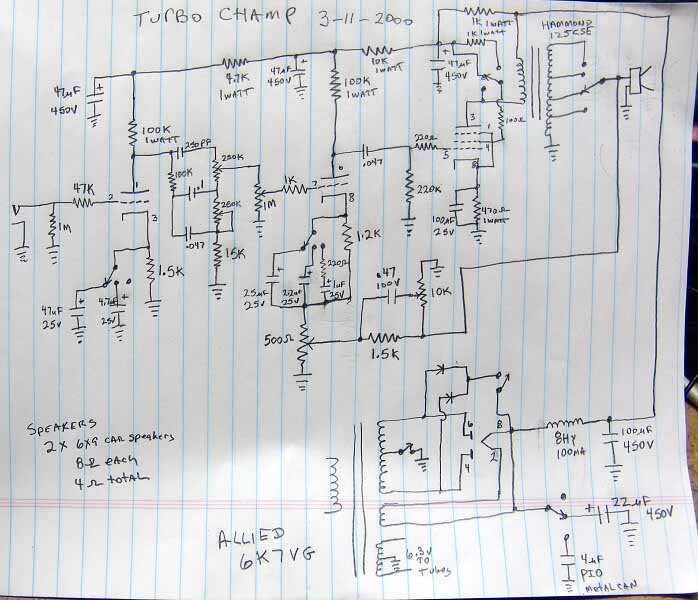 TURBO CHAMP 3-11-2000
1K 1WATT
1K 1WATT
HAMMOND
125CSE
47µF
450V
4.7K
1WATT
47µF
450V
10K
1WATT
47µF
450V
100K
1WATT
100K
1WATT
250PF
100K
250K
.1
250K
.047
15K
1M
1K
7
6
8
.047
220Ω
220K
100Ω
3
1
4
5
8
100µF
25V
470Ω
1WATT
47K
1M
1
2
3
1.5K
47µF
25V
4.7µF
25V
1.2K
25µF
25V
2.2µF
25V
220Ω
1µF
25V
500Ω
.47
100V
10K
1.5K
SPEAKERS
2 X 6X9 CAR SPEAKERS
8Ω each
4Ω total
ALLIED
6K7VG
6
4
8
2
8HY
100MA
100µF
450V
22µF
450V
4µF
PIO
METAL CAN
6.3V
TO
Tubes